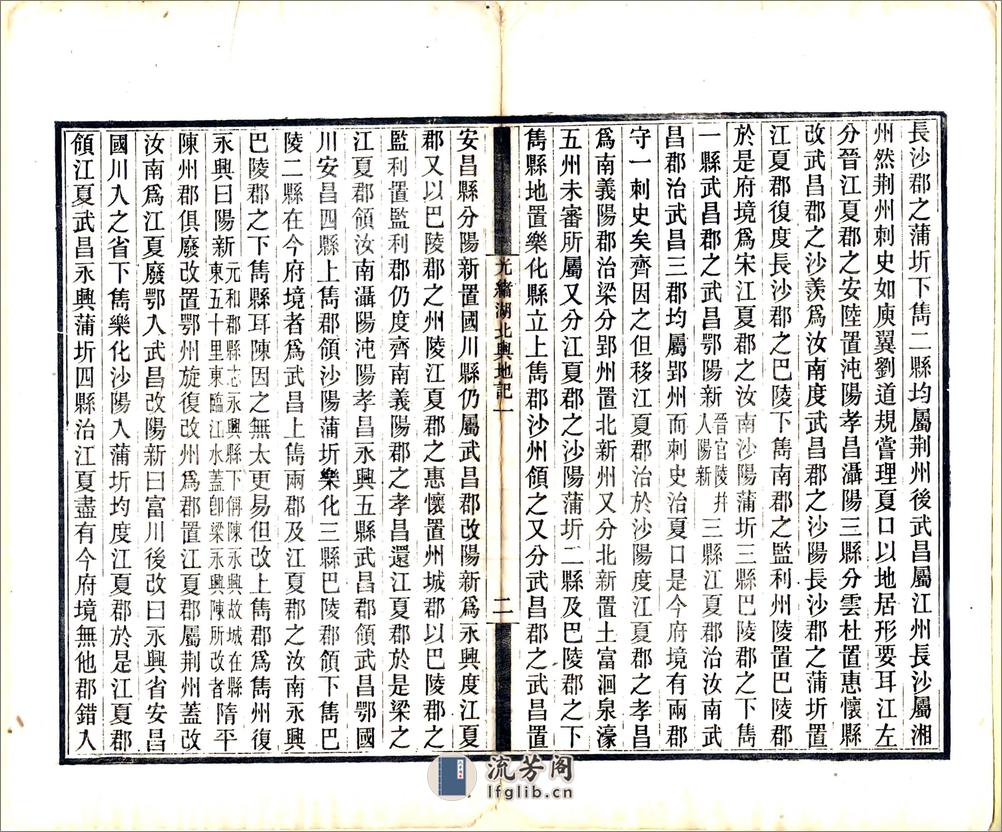 長沙郡之蒲圻下雋二縣均屬荆州後武昌屬江州長沙屬湘
州然荆州刺史如庾翼劉道規嘗理夏口以地居形要耳江左
分晉江夏郡之安陸置沌陽孝昌灄陽三縣分雲杜置惠懷縣
改武昌郡之沙羨爲汝南度武昌郡之沙陽長沙郡之蒲圻置
江夏郡復度長沙郡之巴陵下雋南郡之監利州陵置巴陵郡
於是府境爲宋江夏郡之汝南沙陽蒲圻三縣巴陵郡之下雋
一縣武昌郡之武昌鄂陽新晉官陵幷入陽新三縣江夏郡治汝南武
昌郡治武昌三郡均屬郢州而刺史治夏口是今府境有兩郡
守一刺史矣齊因之但移江夏郡治於沙陽度江夏郡之孝昌
爲南義陽郡治梁分郢州置北新州又分北新置土富洄泉濠
五州未審所屬又分江夏郡之沙陽蒲圻二縣及巴陵郡之下
雋縣地置樂化縣立上雋郡沙州領之又分武昌郡之武昌置
光緖湖北輿地記一
二
安昌縣分陽新置國川縣仍屬武昌郡改陽新爲永興度江夏
郡又以巴陵郡之州陵江夏郡之惠懷置州城郡以巴陵郡之
監利置監利郡仍度齊南義陽郡之孝昌還江夏郡於是梁之
江夏郡領汝南灄陽沌陽孝昌永興五縣武昌郡領武昌鄂國
川安昌四縣上雋郡領沙陽蒲圻樂化三縣巴陵郡領下雋巴
陵二縣在今府境者爲武昌上雋兩郡及江夏郡之汝南永興
巴陵郡之下雋縣耳陳因之無太更易但改上雋郡爲雋州復
永興曰陽新元和郡縣志永興縣下偁陳永興故城在縣東五十里東臨江水蓋卽梁永興陳所改者隋平
陳州郡俱廢改置鄂州旋復改州爲郡置江夏郡屬荆州蓋改
汝南爲江夏廢鄂入武昌改陽新曰富川後改曰永興省安昌
國川入之省下雋樂化沙陽入蒲圻均度江夏郡於是江夏郡
領江夏武昌永興蒲圻四縣治江夏盡有今府境無他郡錯入
流芳阁
lfglib.cn